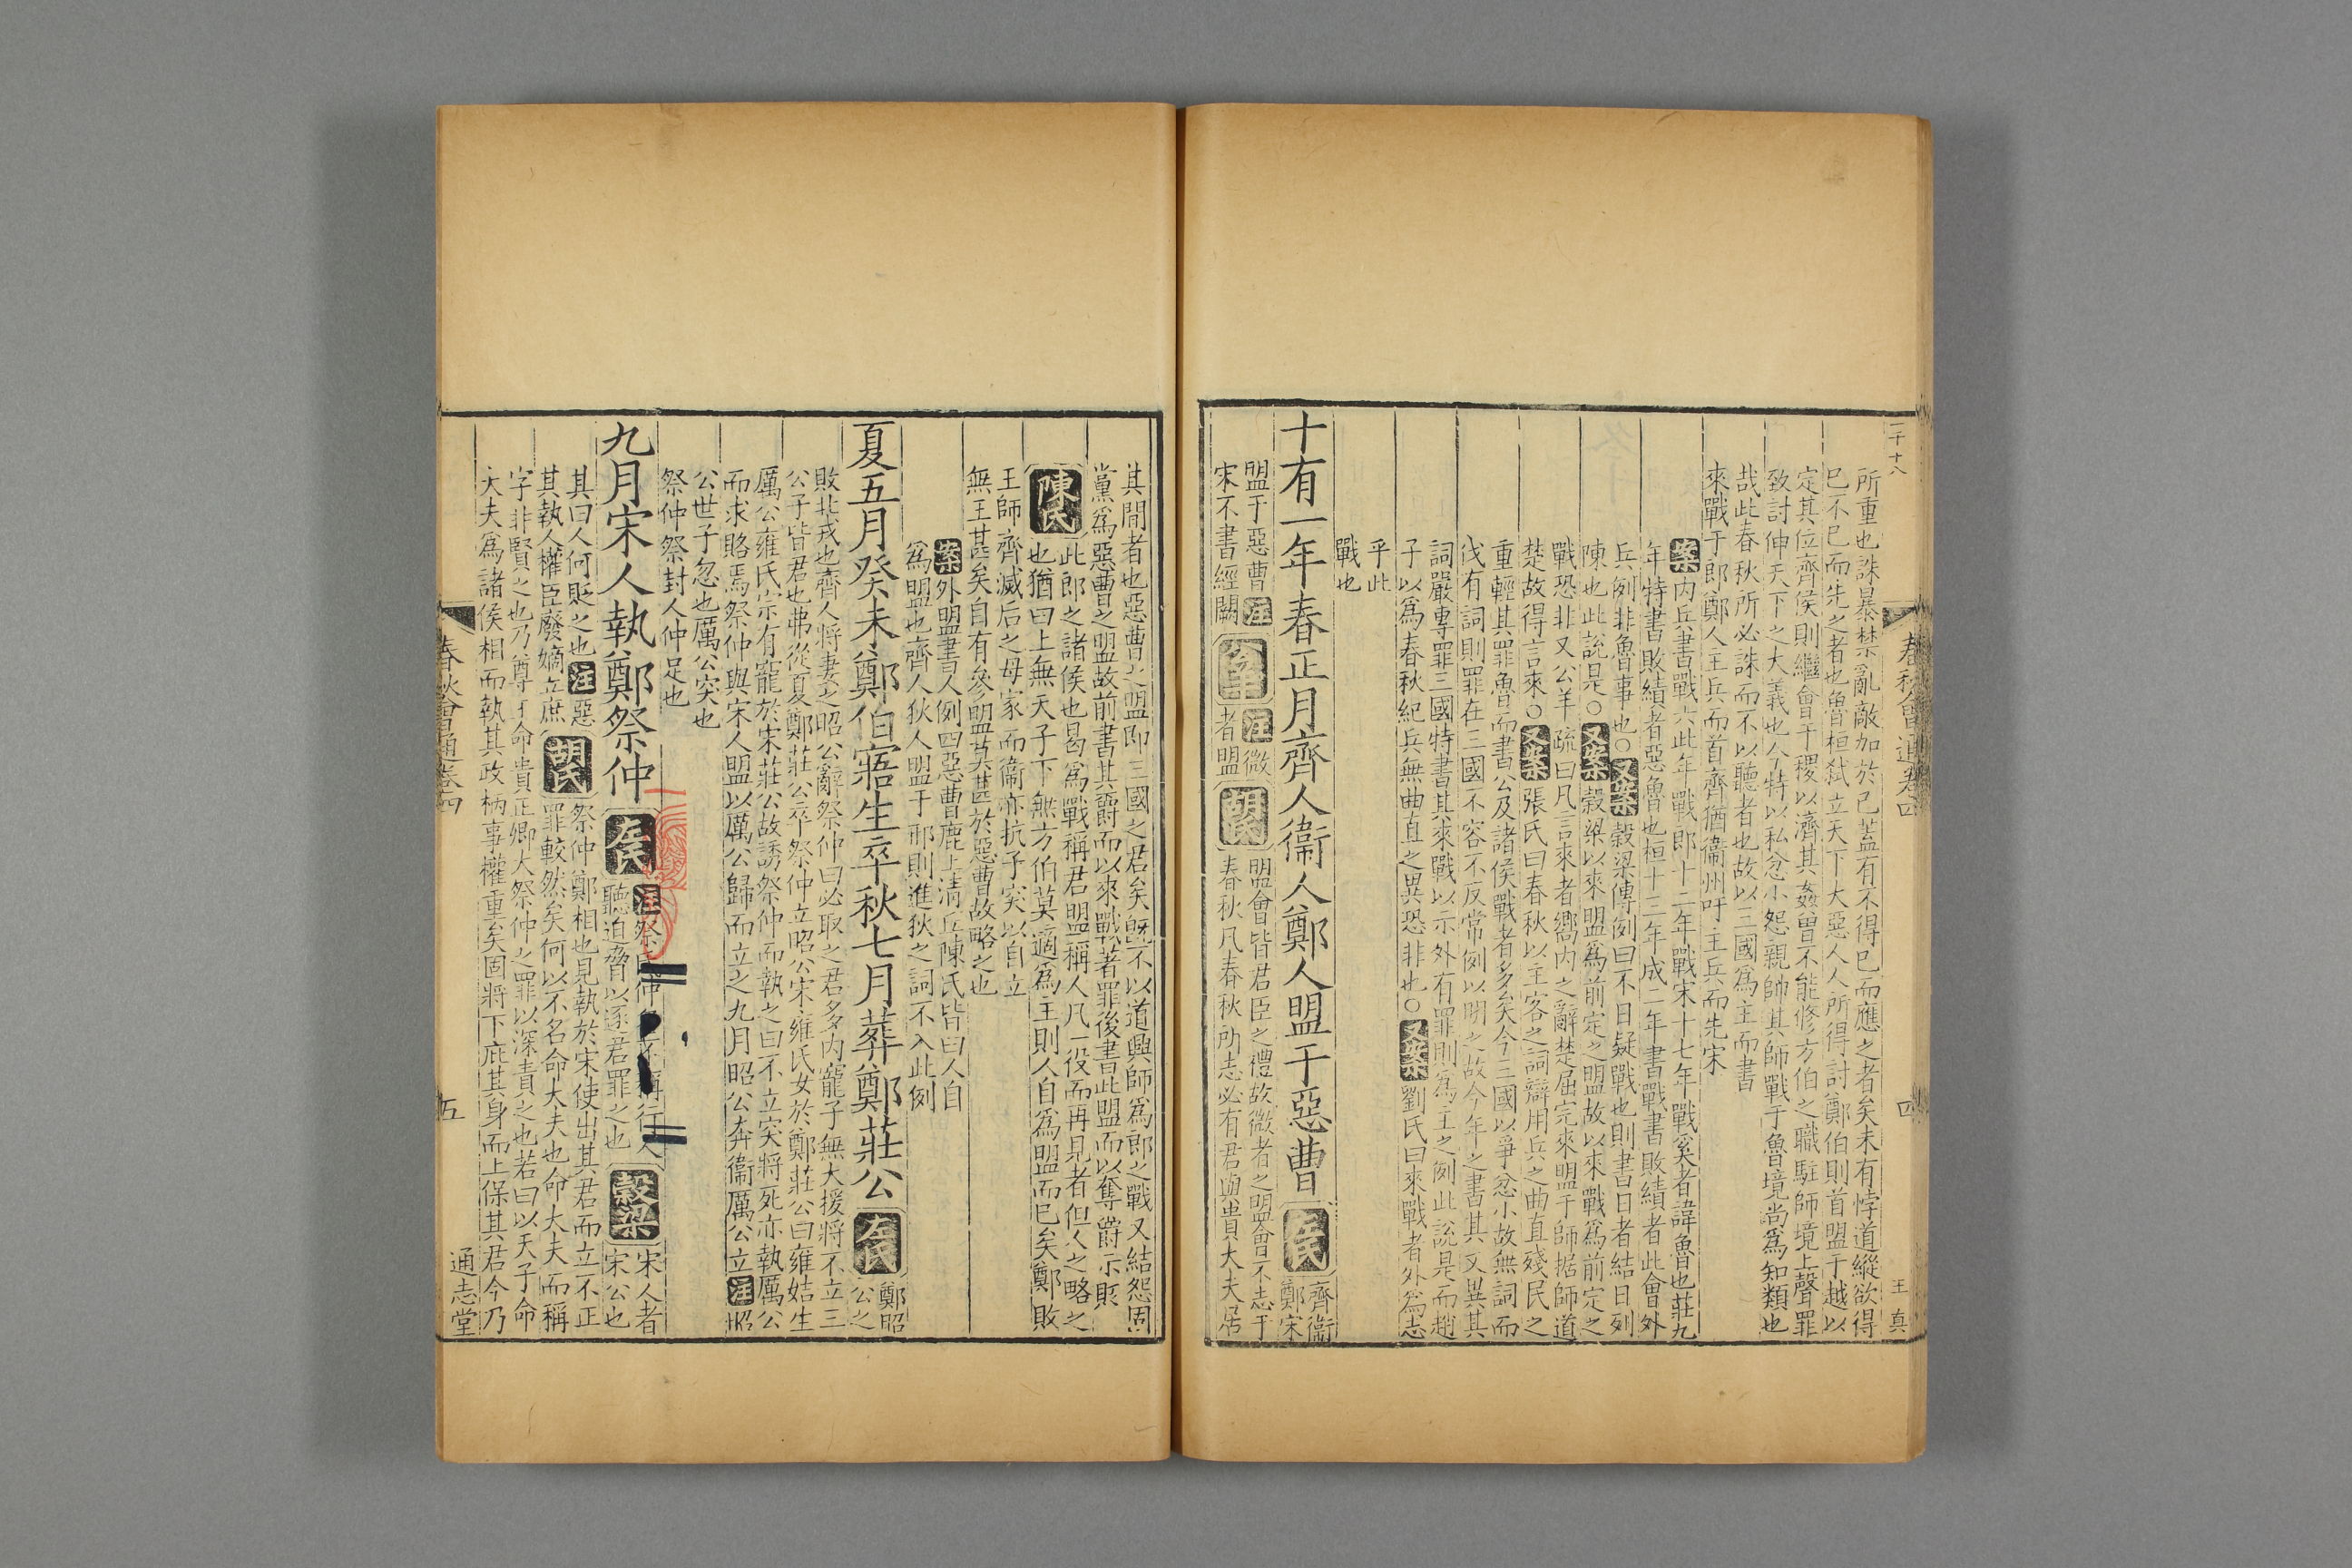 一千十八
春秋會通卷四
四
王真
所重也誅暴禁亂敵加於己蓋有不得已而應之者矣未有悖道縱欲得
已不已而先之者也魯桓弑立天下大惡人人所得討鄭伯則首盟于越以
定其位齊侯則繼會于稷以濟其姦曾不能修方伯之職駐師境上聲罪
致討伸天下之大義也今特以私忿小怨親帥其師戰于魯境尚爲知類也
哉此春秋所必誅而不以聽者也故以三國爲主而書
來戰于郎鄭人主兵而首齊猶衞州吁主兵而先宋
案内兵書戰六此年戰郎十二年戰宋十七年戰奚者諱魯也莊九
年特書敗績者惡魯也桓十三年成二年書戰書敗績者此會外
兵例非魯事也○又案穀梁傳例曰不日疑戰也則書日者結日列
陳也此說是○又案穀梁以來盟爲前定之盟故以來戰爲前定之
戰恐非又公羊疏曰凡言來者嚮内之辭楚屈完來盟于師据師道
楚故得言來○又案張氏曰春秋以主客之詞辯用兵之曲直殘民之
重輕其罪魯而書公及諸侯戰者多矣今三國以爭忿小故無詞而
伐有詞則罪在三國不容不反常例以明之故今年之書其又異其
詞嚴專罪三國特書其來戰以示外有罪則爲主之例此說是而趙
子以爲春秋紀兵無曲直之異恐非也○又案劉氏曰來戰者外爲志
乎此
戰也
十有一年春正月齊人衞人鄭人盟于惡曹 左氏 齊衞
鄭宋
盟于惡曹注
宋不書經闕 公羊 注微
者盟 胡氏 明會皆君臣之禮故微者之明會不志于
春秋凡春秋所志必有君與貴大夫居
其閒者也惡曹之盟即三國之君矣旣不以道興師爲郎之戰又結怨固
黨爲惡曹之盟故前書其爵而以來戰著罪後書此盟而以奪爵示貶
陳氏 此郎之諸侯也曷爲戰稱君盟稱人凡一役而再見者但人之略之
也猶曰上無天子下無方伯莫適爲主則人自爲盟而已矣鄭敗
王師齊滅后之母家而衞亦抗子突以自立
無王甚矣自有參盟莫甚於惡曹故略之也
案外盟書人例四惡曹鹿上清丘陳氏皆曰人自
爲盟也齊人狄人盟于邢則進狄之詞不入此例
夏五月癸未鄭伯寤生卒秋七月葬鄭莊公 左氏 鄭昭
公之
敗北戎也齊人將妻之昭公辭祭仲曰必取之君多内寵子無大援將不立三
公子皆君也弗從夏鄭莊公卒祭仲立昭公宋雍氏女於鄭莊公曰雍姞生
厲公雍氏宗有寵於宋莊公故誘祭仲而執之曰不立突將死亦執厲公
而求賂焉祭仲與宋人盟以厲公歸而立之九月昭公奔衞厲公立注昭
公世子忽也厲公突也
祭仲祭封人仲足也
九月宋人執鄭祭仲 左氏 注祭
聽迫脅以逐君罪之也 穀梁 宋人者
宋公也
其曰人何貶之也注惡
其執人權臣廢嫡立庶 胡氏 祭仲鄭相也見執於宋使出其君而立不正
罪較然矣何以不名命大夫也命大夫而稱
字非賢之也乃尊王命貴正卿大祭仲之罪以深責之也若曰以天子命
大夫爲諸侯相而執其政柄事權重矣固將下庇其身而上保其君今乃
春秋會通卷四
五
通志堂